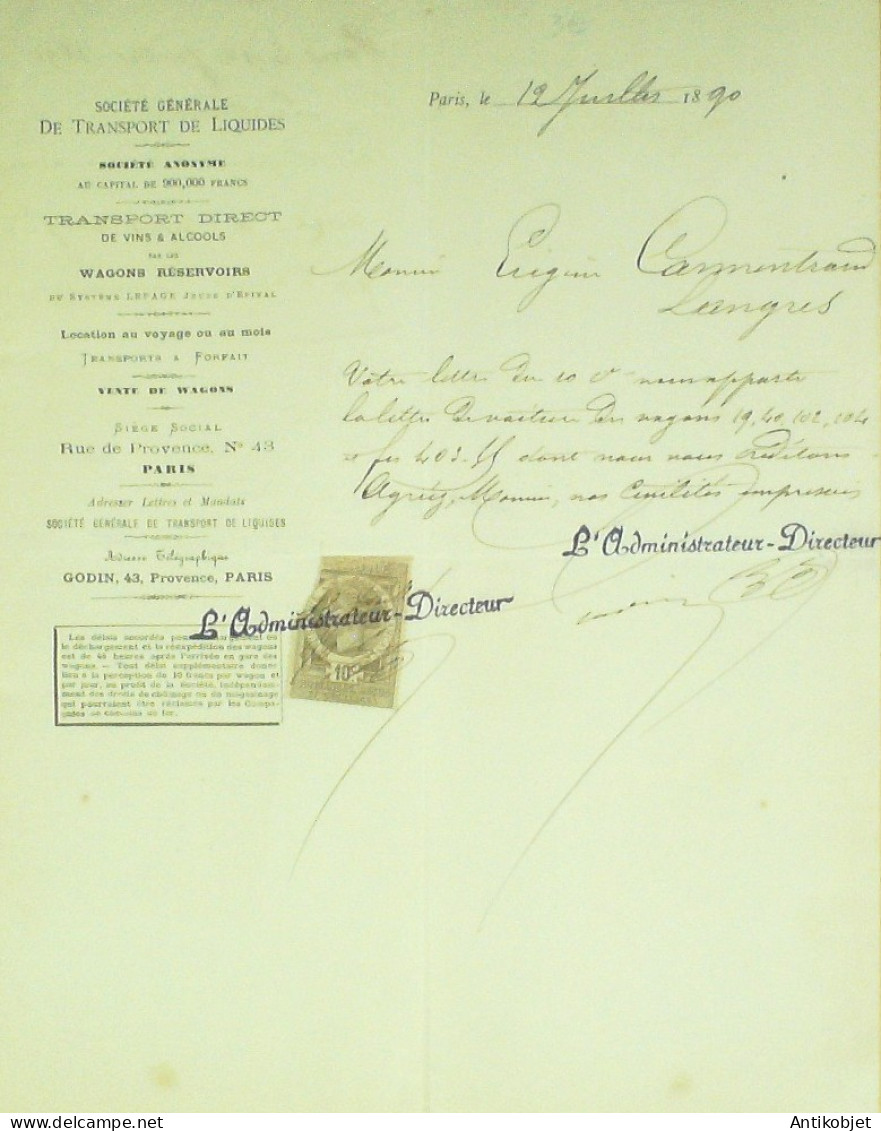 Paris, le 12 Juillet 1890
SOCIÉTÉ GÉNÉRALE
DE TRANSPORT DE LIQUIDES
SOCIÉTÉ ANONYME
AU CAPITAL DE 900,000 FRANCS
TRANSPORT DIRECT
DE VINS & ALCOOLS
PAR LES
WAGONS RÉSERVOIRS
DU SYSTÈME LEPAGE JEUNE D'EPINAL
Location au voyage ou au mois
TRANSPORTS A FORFAIT
VENTE DE WAGONS
SIÈGE SOCIAL
Rue de Provence, No 43
PARIS
Adresser Lettres et Mandats
SOCIÉTÉ GÉNÉRALE DE TRANSPORT DE LIQUIDES
Adresse Télégraphique
GODIN, 43, Provence, PARIS
Les délais accordés pour le chargement ou
le déchargement et la réexpédition des wagons
est de 48 heures après l'arrivée en gare des
wagons. — Tout délai supplémentaire donne
lieu à la perception de 10 francs par wagon et
par jour, au profit de la Société, indépendam-
ment des droits de chômage ou de magasinage
qui pourraient être réclamés par les Compa-
gnies de chemins de fer.
Monsieur Eugène
Langres
Votre lettre du 10 Ct nous apporte
la lettre de voiture des wagons 19, 40, 102, 104
dont nous vous créditons
Agréez, Monsieur, nos Civilités empressées
L'Administrateur-Directeur
L'Administrateur-Directeur
10c
Antikobjet